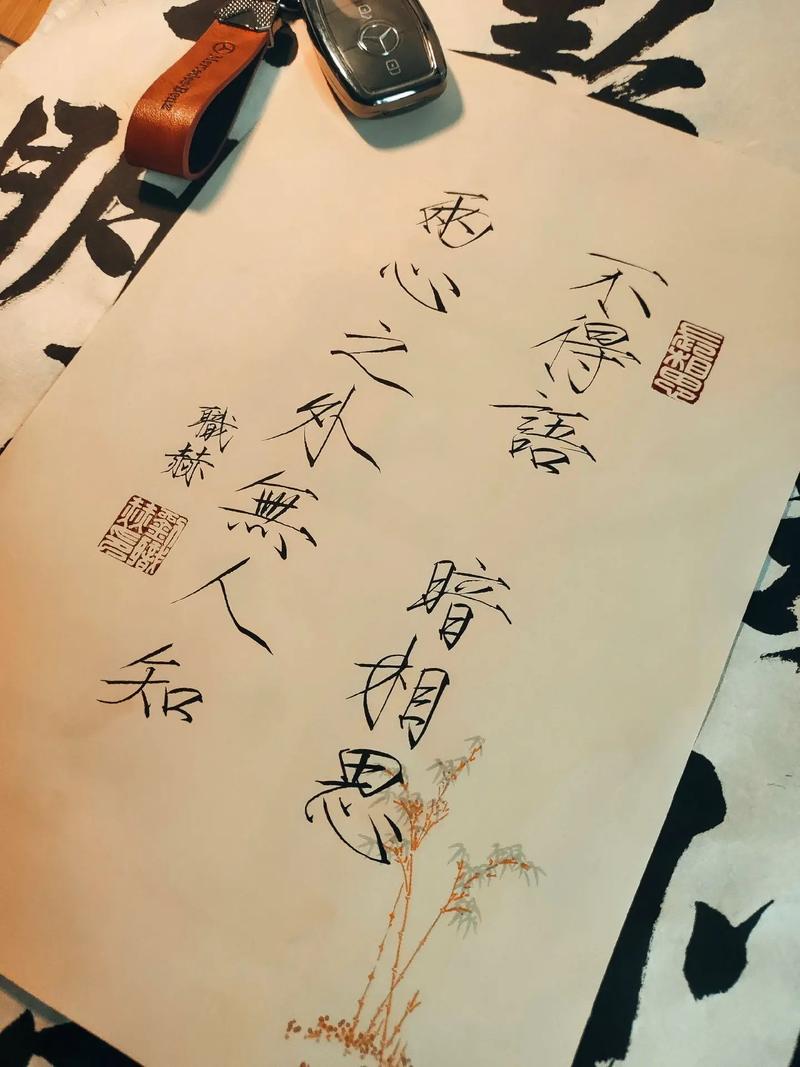 Mercedes-Benz
不得語 暗相思
兩心之外無人知
職赫